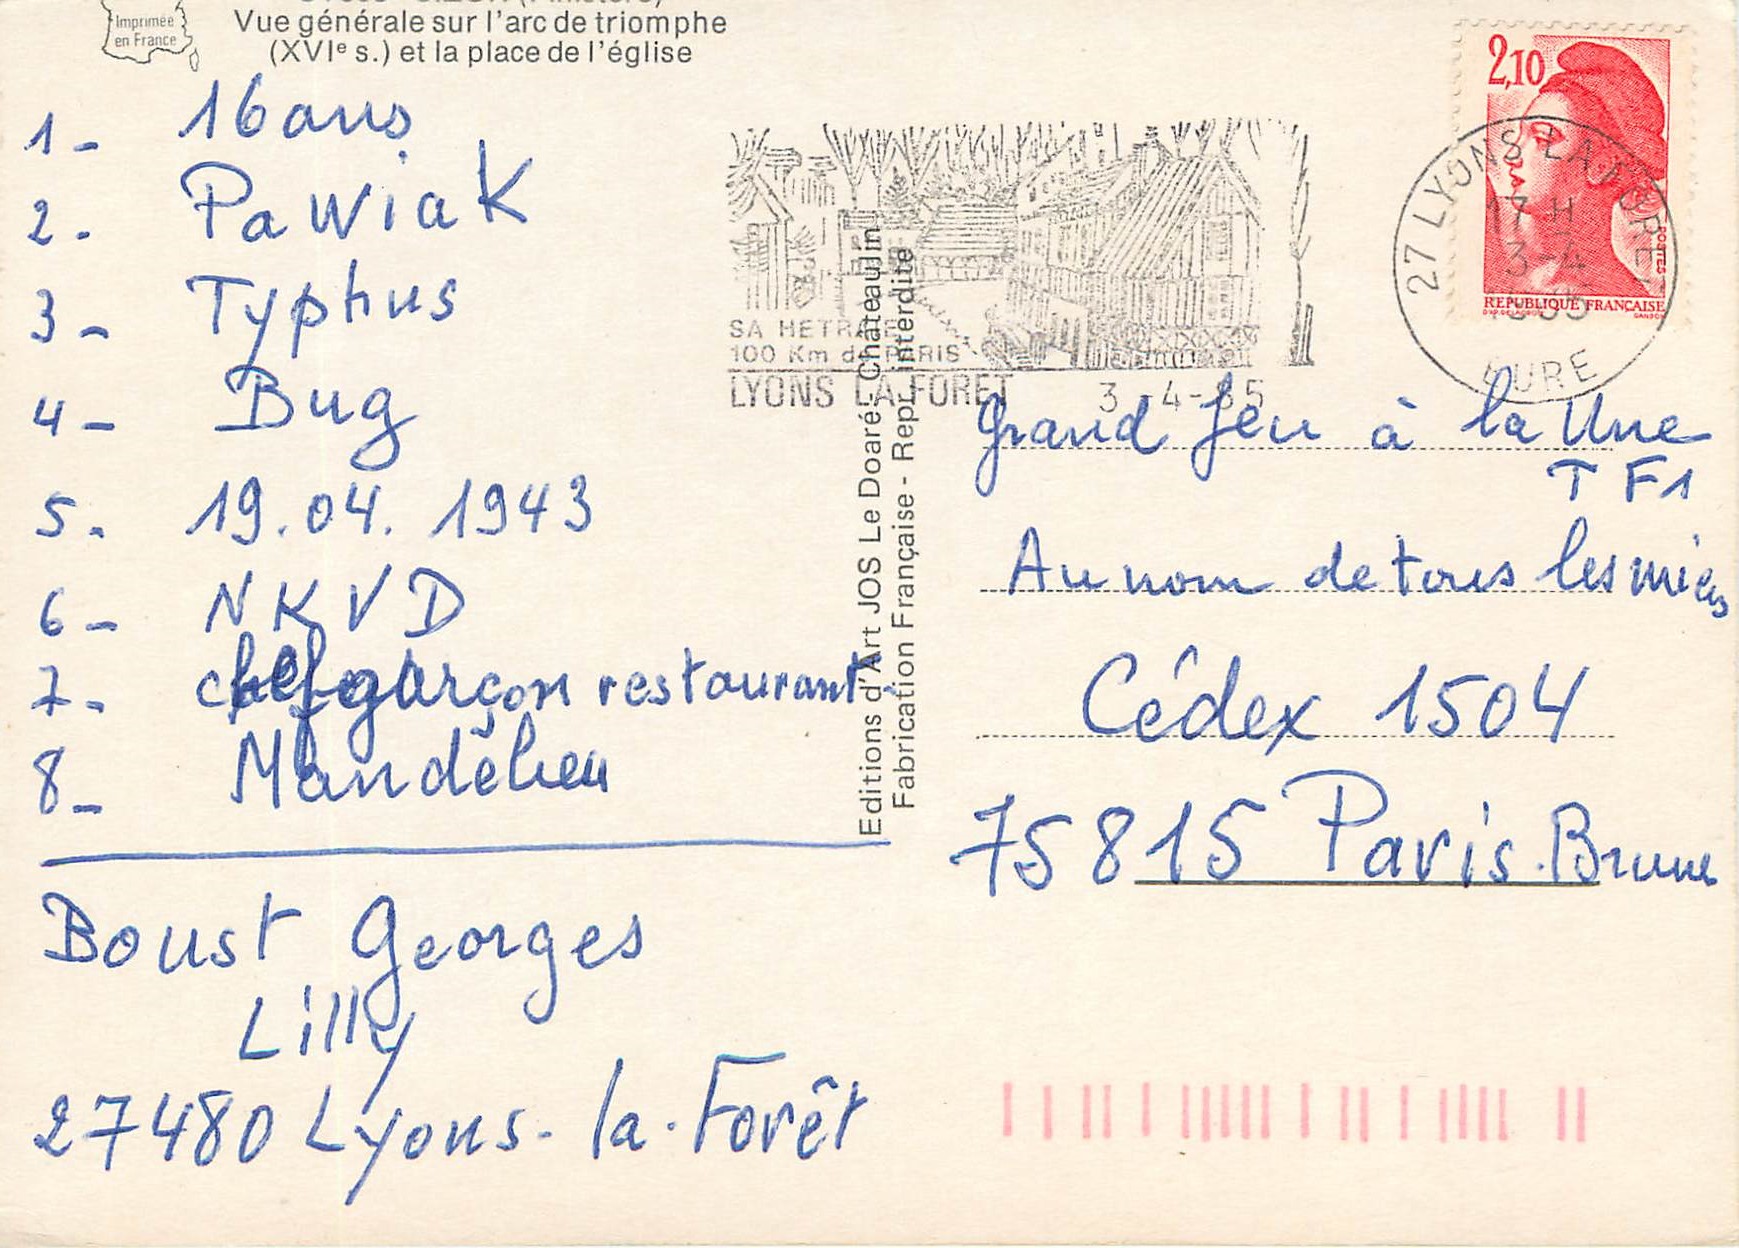 Imprimée
en France
Vue générale sur l'arc de triomphe
(XVIe s.) et la place de l'église
1- 16 ans
2. Pawiak
3- Typhus
4- Bug
5. 19.04. 1943
6- NKVD
7- chef garçon restaurant
8- Mandelieu
Boust Georges
Lilly
27480 Lyons-la-Forêt
Editions d'Art JOS Le Doaré-Châteaulin
Fabrication Française - Repr. interdite
SA HETRAIE
100 Km de PARIS
LYONS LA FORET 3-4-85
27 LYONS LA FORET
17 H
3-4
1985
EURE
2,10
POSTES
REPUBLIQUE FRANÇAISE
GANDON
Grand Jeu à la Une
TF1
Au nom de tous les miens
Cédex 1504
75815 Paris.Brune